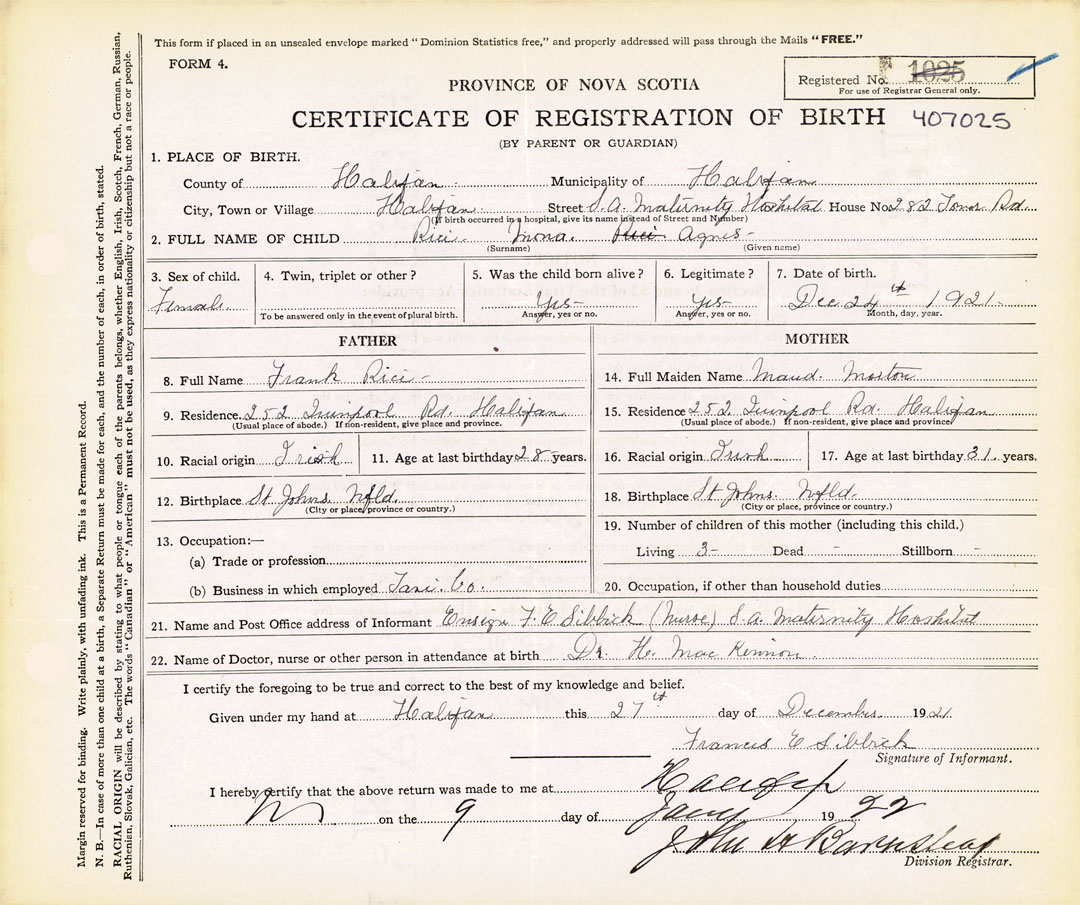 This form if placed in an unsealed envelope marked "Dominion Statistics free," and properly addressed will pass through the Mails "FREE."
FORM 4.
Registered No. 1025
For use of Registrar General only.
PROVINCE OF NOVA SCOTIA
CERTIFICATE OF REGISTRATION OF BIRTH 407025
(BY PARENT OR GUARDIAN)
1. PLACE OF BIRTH.
County of Halifax Municipality of Halifax
City, Town or Village Halifax Street S.A. Maternity Hospital House No. 282 Tower Rd.
(If birth occurred in a hospital, give its name instead of Street and Number)
2. FULL NAME OF CHILD Rici Mona Rici Agnes
(Surname) (Given name)
3. Sex of child. 4. Twin, triplet or other? 5. Was the child born alive? 6. Legitimate? 7. Date of birth.
Female. Yes- Yes- Dec 24th 1921.
To be answered only in the event of plural birth. Answer, yes or no. Answer, yes or no. Month, day, year.
FATHER
8. Full Name Frank Rici-
9. Residence. 252 Quinpool Rd. Halifax
(Usual place of abode.) If non-resident, give place and province.
10. Racial origin Irish 11. Age at last birthday 28 years.
12. Birthplace St Johns Nfld.
(City or place, province or country.)
13. Occupation:—
(a) Trade or profession
(b) Business in which employed Taxi. Co.
MOTHER
14. Full Maiden Name Maud. Morton
15. Residence 252 Quinpool Rd. Halifax
(Usual place of abode.) If non-resident, give place and province
16. Racial origin Irish 17. Age at last birthday 31. years.
18. Birthplace St Johns. Nfld.
(City or place, province or country.)
19. Number of children of this mother (including this child.)
Living 3- Dead - Stillborn -
20. Occupation, if other than household duties
21. Name and Post Office address of Informant Ensign F. E Sibbick (Nurse) S.A. Maternity Hospital
22. Name of Doctor, nurse or other person in attendance at birth Dr. H. Mac Kinnon.
I certify the foregoing to be true and correct to the best of my knowledge and belief.
Given under my hand at Halifax this 27th day of December 1921.
Francis E Sibbick
Signature of Informant.
I hereby certify that the above return was made to me at Halifax
NS on the 9 day of Jany 1922
John H Barnstead
Division Registrar.
Margin reserved for binding. Write plainly, with unfading ink. This is a Permanent Record.
N. B.—In case of more than one child at a birth, a Separate Return must be made for each, and the number of each, in order of birth, stated.
RACIAL ORIGIN will be described by stating to what people or tongue each of the parents belongs, whether English, Irish, Scotch, French, German, Russian,
Ruthenian, Slovak, Galician, etc. The words "Canadian" or "American" must not be used, as they express nationality or citizenship but not a race or people.